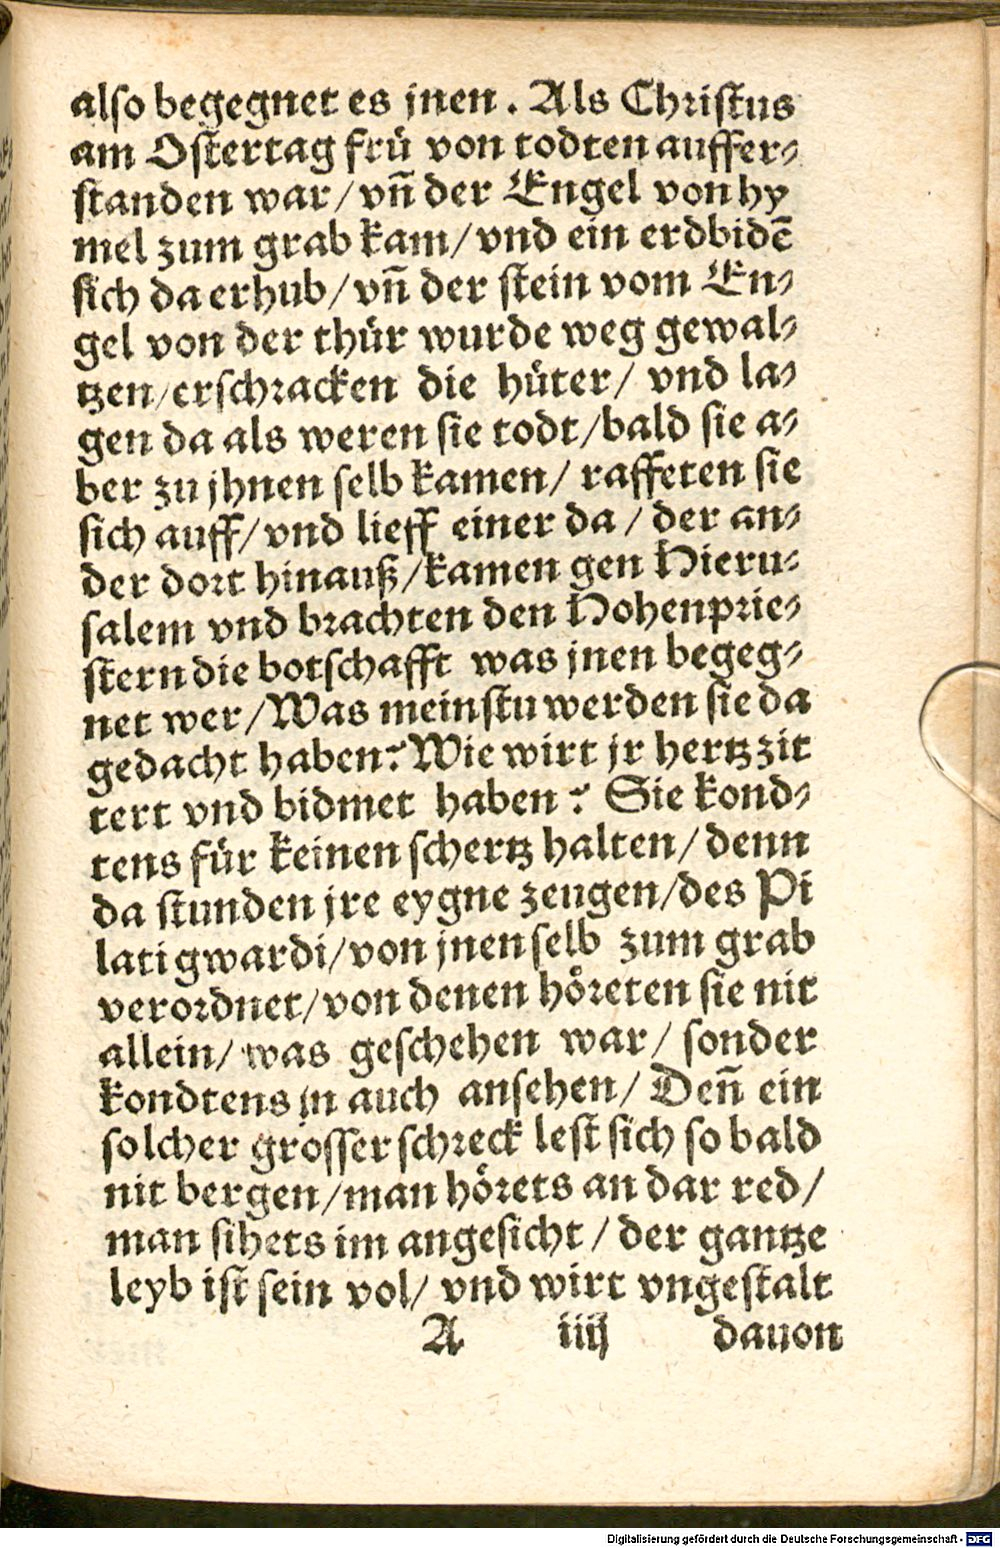 also begegnet es jnen. Als Christus
am Ostertag frü von todten auffer-
standen war/ vñ der Engel von hy
mel zum grab kam/ vnd ein erdbidē
sich da erhub/ vñ der stein vom En-
gel von der thür wurde weg gewal-
tzen/ erschracken die hüter/ vnd la-
gen da als weren sie todt/ bald sie a-
ber zu jhnen selb kamen/ raffeten sie
sich auff/ vnd lieff einer da / der an-
der dort hinauß/ kamen gen Hieru-
salem vnd brachten den Hohenprie-
stern die botschafft was jnen begeg-
net wer/ Was meinstu werden sie da
gedacht haben? Wie wirt jr hertz zit
tert vnd bidmet haben? Sie kond-
tens für keinen schertz halten/ denn
da stunden jre eygne zeugen/ des Pi
lati gwardi/ von jnen selb zum grab
verordnet/ von denen höreten sie nit
allein/ was geschehen war/ sonder
kondtens jn auch ansehen/ Deñ ein
solcher grosser schreck lest sich so bald
nit bergen/ man hörets an dar red/
man sihets im angesicht / der gantze
leyb ist sein vol/ vnd wirt vngestalt
A iiij dauon
Digitalisierung gefördert durch die Deutsche Forschungsgemeinschaft - DFG